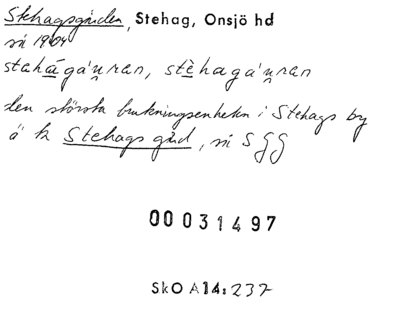 Stehagsgården, Stehag, Onsjö hd
si 1904
stahágáu̯ran, stèhagáu̯ran
den största brukningsenheten i Stehags by
å k Stehagsgård, si S GG
00031497
SkO A14:237